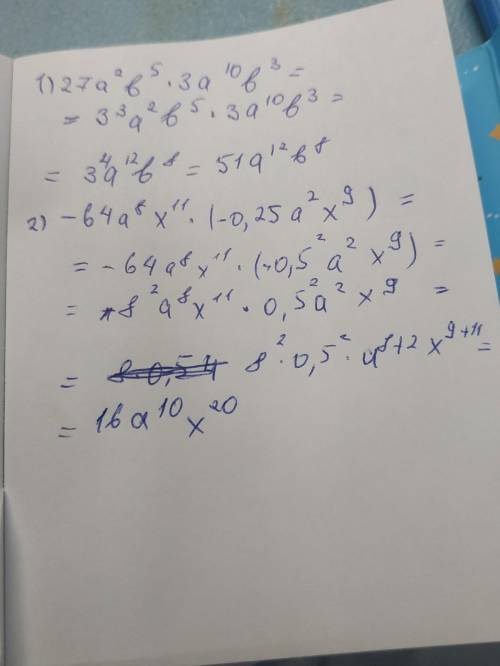 1) 27a²b⁵ · 3a¹⁰b³ =
= 3³a²b⁵ · 3a¹⁰b³ =
= 3⁴a¹²b⁸ = 51a¹²b⁸
2) -64a⁸x¹¹ · (-0,25a²x⁹) =
= -64a⁸x¹¹ · (-0,5²a²x⁹) =
= 8²a⁸x¹¹ · 0,5²a²x⁹ =
= 8² · 0,5² · a⁸⁺²x⁹⁺¹¹ =
= 16a¹⁰x²⁰